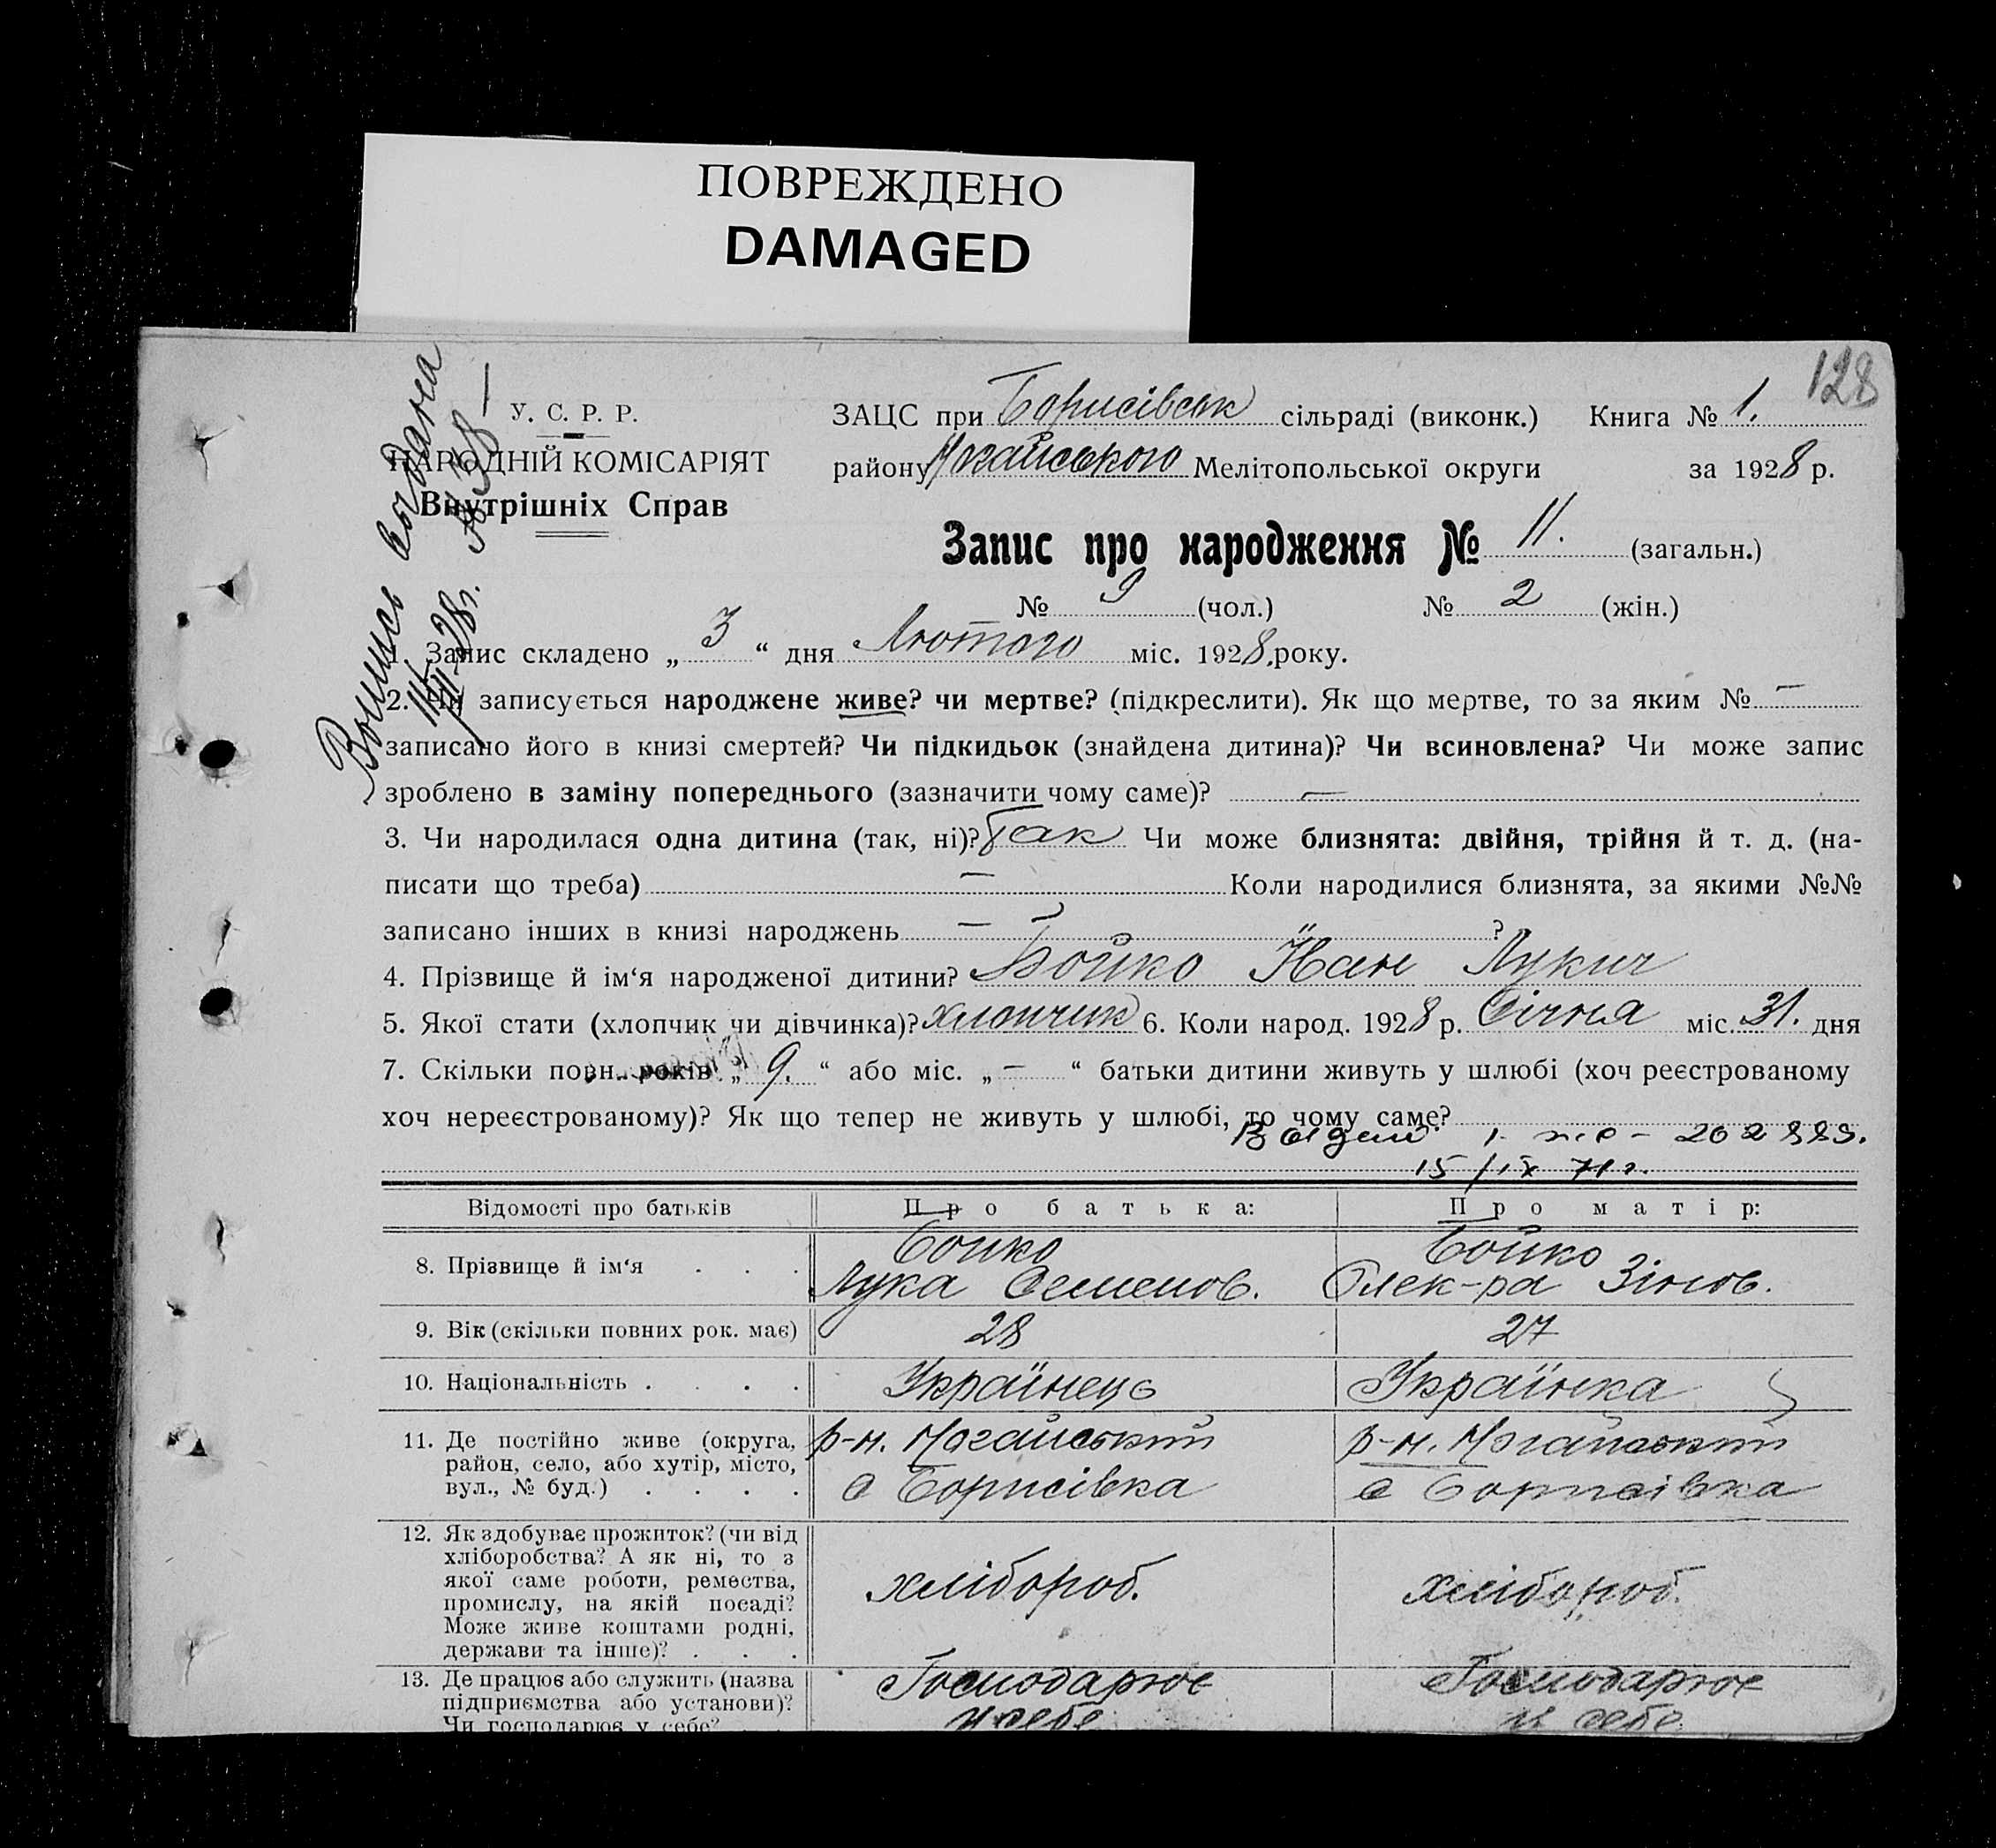 ПОВРЕЖДЕНО
DAMAGED
128
У. С. Р. Р.
НАРОДНІЙ КОМІСАРІЯТ
Внутрішніх Справ
Выпись выдана
№ 38
ЗАЦС при Борисівськ сільраді (виконк.) Книга № 1.
району Ногайського Мелітопольської округи за 1928 р.
Запис про народження № 11. (загальн.)
№ 9 (чол.) № 2 (жін.)
1. Запис складено „ 3 “ дня Лютого міс. 1928. року.
2. Чи записується народжене живе? чи мертве? (підкреслити). Як що мертве, то за яким № —
записано його в книзі смертей? Чи підкидьок (знайдена дитина)? Чи всиновлена? Чи може запис
зроблено в заміну попереднього (зазначити чому саме)? —
3. Чи народилася одна дитина (так, ні)? Так Чи може близнята: двійня, трійня й т. д. (на-
писати що треба) — Коли народилися близнята, за якими №№
записано інших в книзі народжень — ?
4. Прізвище й ім‘я народженої дитини? Бойко Лукич
5. Якої стати (хлопчик чи дівчинка)? хлопчик 6. Коли народ. 1928 р. Січня міс. 31. дня
7. Скільки повн. років „ 9. “ або міс. „ — “ батьки дитини живуть у шлюбі (хоч реєстрованому
хоч нереєстрованому)? Як що тепер не живуть у шлюбі, то чому саме?
15/IX 71 г.
Відомості про батьків Про батька: Про матір:
8. Прізвище й ім‘я . . . Бойко Бойко
Лука Семенов. Олек-ра Зінов.
9. Вік (скільки повних рок. має) 28 27
10. Національність . . . . Українець Українка
11. Де постійно живе (округа, р-н. Ногайський р-н. Ногайський
район, село, або хутір, місто,
вул., № буд.) . . . . с Борисівка с Борисівка
12. Як здобуває прожиток? (чи від
хліборобства? А як ні, то з
якої саме роботи, ремества, хлібороб. хлібороб.
промислу, на якій посаді?
Може живе коштами родні,
держави та інше)? . . .
13. Де працює або служить (назва Господарює Господарює
підприємства або установи)?
Чи господарює у себе? у себе у себе